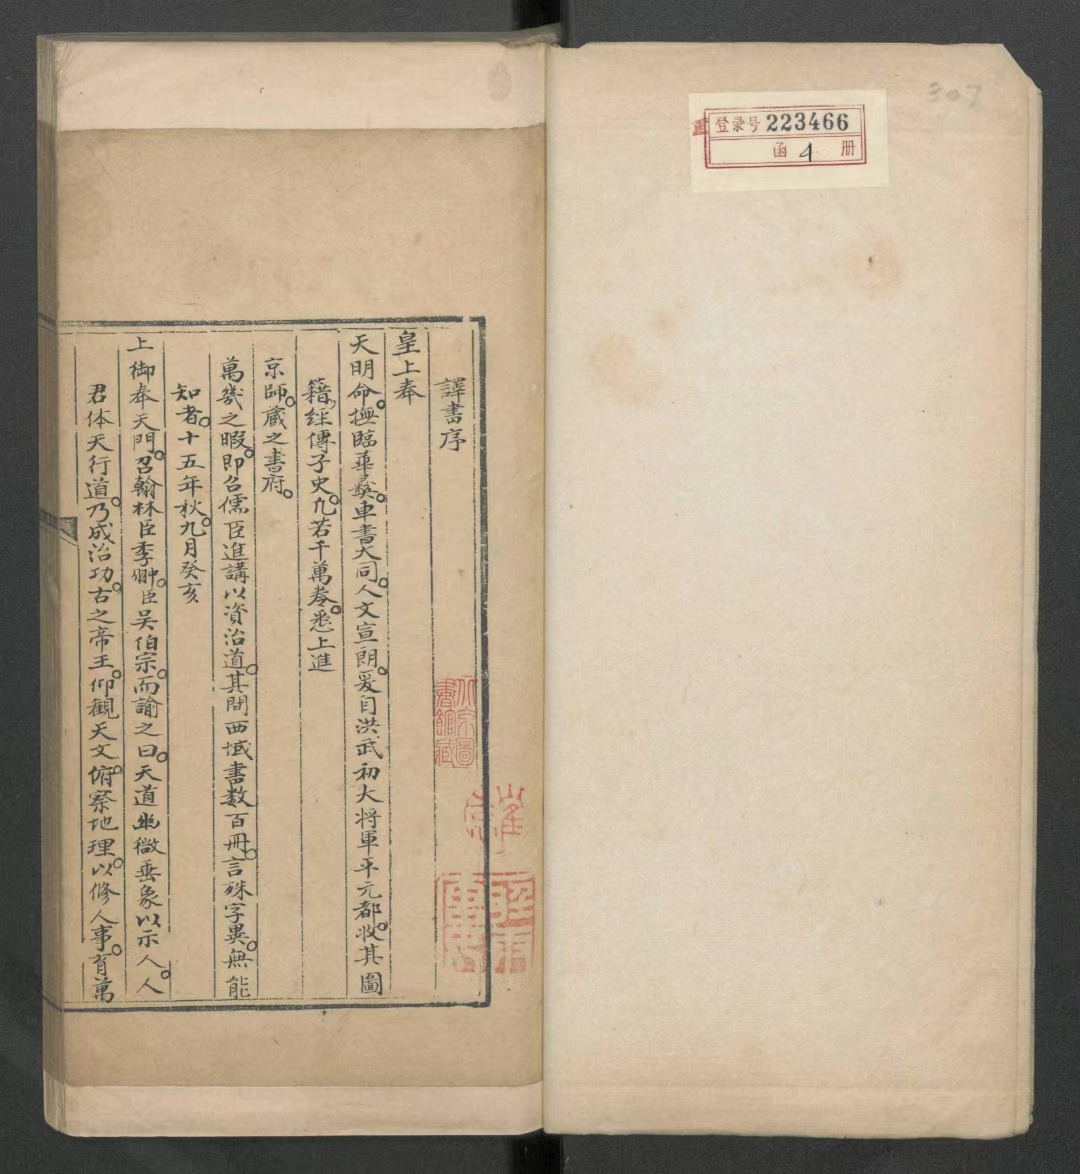 307
登录号 223466
函 4 册
譯書序
皇上奉
天明命。撫臨華彛。車書大同。人文宣朗。爰自洪武初大将軍平元都。收其圖
籍。經傳子史。凢若干萬卷。悉上進
京師。蔵之書府。
萬㡬之暇。即召儒臣進講以資治道。其間西域書数百冊。言殊字異。無能
知者。十五年秋。九月癸亥
上御奉天門。召翰林臣李翀。臣吴伯宗。而諭之曰。天道幽微垂象以示人。人
君体天行道。乃成治功。古之帝王。仰観天文。俯察地理。以修人事。育萬
北京圖書館藏